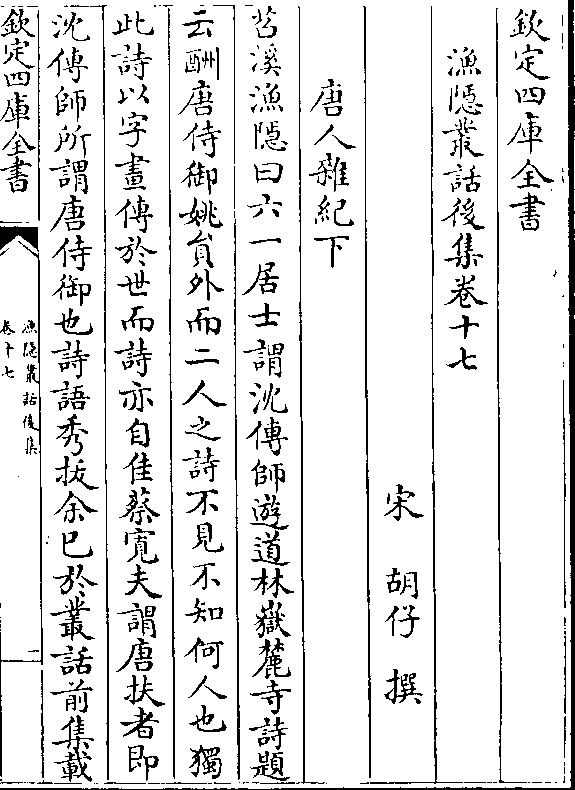 欽定四庫全書
漁隱叢話後集卷十七
宋 胡仔 撰
唐人雜紀下
苕溪漁隱曰六一居士謂沈傳師遊道林嶽麓寺詩題
云酬唐侍御姚員外而二人之詩不見不知何人也獨
此詩以字畫傳於世而詩亦自佳蔡寬夫謂唐扶者即
沈傳師所謂唐侍御也詩語秀拔余已於叢話前集載
欽定四庫全書
漁隱叢話後集
卷十七
一